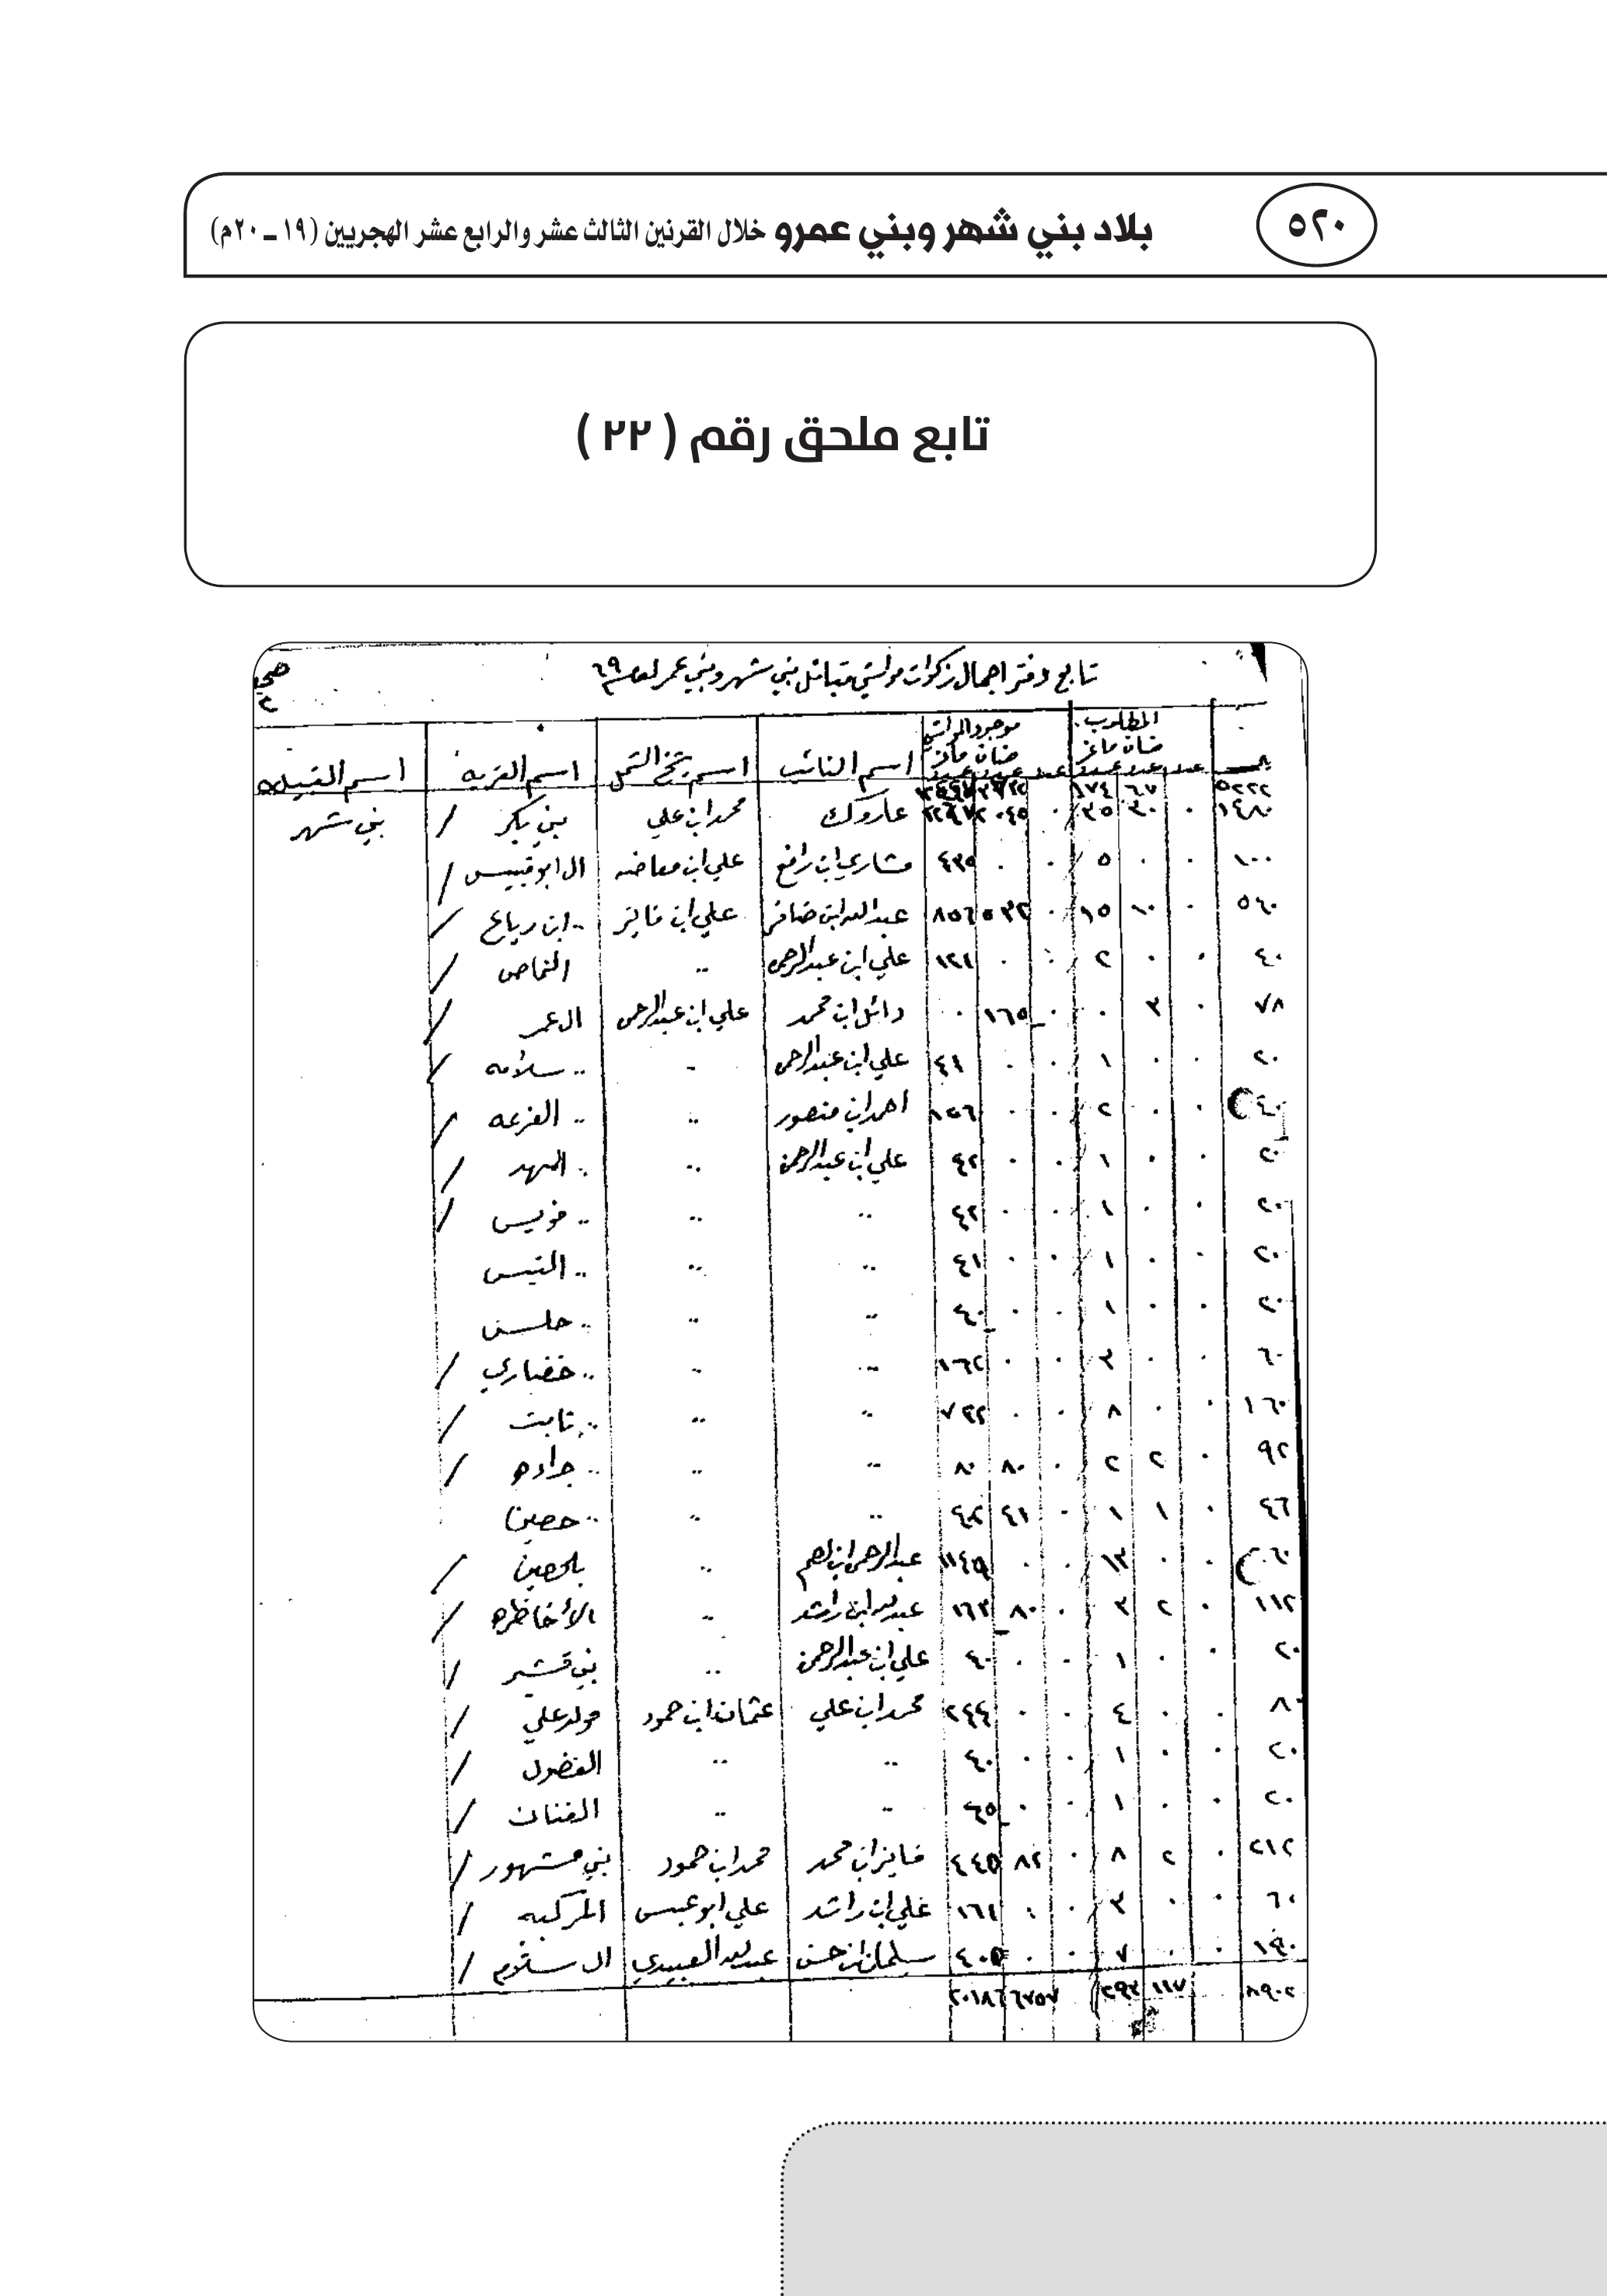 ٥٢٠
بلاد بني شهر وبني عمرو خلال القرنين الثالث عشر والرابع عشر الهجريين (١٩ ــ ٢٠م)
تابع ملحق رقم ( ٢٢ )
تابع دفتر اجمال زكوات مواشي قبائل بني شهر وبني عمر لعام ٦٩
المطلوب موجود المواشي
ضان ماعز ضان ماعز
عدد عدد عدد عدد عدد عدد اسم النائب اسم شيخ الشمل اسم القريه اسم القبيله
٥٢٢٢ ٦٧ ١٧٤
١٤٨٠ ٠ ٣٠ ٣٥ ٠ ٢٠٤٥ عاروك محمد ابن علي بني بكر / بني شهر
١٠٠ ٠ ٠ ٥ ٠ ٠ ٤٣٥ مشاري ابن رافع علي ابن معاضه ال ابو قبيس /
٥٦٠ ٠ ١٠ ١٥ ٠ ٥٣٢ ٨٥٦ عبدالله ابن ضافر علي ابن فايز .. ابن رياع /
٤٠ ٠ ٠ ٢ ٠ ٠ ١٢١ علي ابن عبدالرحمن .. النماص /
٧٨ ٠ ٣ ٠ ٠ ١٦٥ ٠ دائل ابن محمد علي ابن عبدالرحمن ال عمر /
٢٠ ٠ ٠ ١ ٠ ٠ ٤١ علي ابن عبدالرحمن .. .. سلامه /
٤٠ ٠ ٠ ٢ ٠ ٠ ١٥٦ احمد ابن منصور .. .. الفرعه /
٢٠ ٠ ٠ ١ ٠ ٠ ٤٢ علي ابن عبدالرحمن .. .. المهد /
٢٠ ٠ ٠ ١ ٠ ٠ ٤٢ .. .. .. /
٢٠ ٠ ٠ ١ ٠ ٠ ٤١ .. .. .. التيس
٢٠ ٠ ٠ ١ ٠ ٠ ٤٠ .. .. ..
٦٠ ٠ ٠ ٣ ٠ ٠ ١٠٦٢ .. .. .. خضاري /
١٦٠ ٠ ٠ ٨ ٠ ٠ ٧٣٢ .. .. .. ثابت /
٩٢ ٠ ٢ ٢ ٠ ٨٠ ٨٠ .. .. .. جراده /
٤٦ ٠ ١ ١ ٠ ٤١ ٤٠٢ .. .. .. حصين
٠ ٠ ١٣ ٠ ٠ ١١٤٥ .. بلحصين /
١١٢ ٠ ٢ ٣ ٠ ٨٠ ١٦٣ عبدالله ابن راشد .. الأخاظره /
٢٠ ٠ ٠ ١ ٠ ٠ ٤٠ علي ابن عبدالرحمن .. بني قشير /
٨٠ ٠ ٠ ٤ ٠ ٠ ٢٤٤ محمد ابن علي عثمان ابن حمود مولد علي /
٢٠ ٠ ٠ ١ ٠ ٠ ٤٠ .. .. الفضول /
٢٠ ٠ ٠ ١ ٠ ٠ ٦٥ .. .. القنان /
٢١٢ ٠ ٢ ٨ ٠ ٨٢ ٤٤٥ فايز ابن محمد محمد ابن حمود بني مشهور /
٦٠ ٠ ٠ ٣ ٠ ٠ ١٦١ علي ابن راشد علي ابو عبس المركبه /
١٤٠ ٠ ٠ ٧ ٠ ٠ ٤٠٥ سلمان ابن حسن عبدالله العبيدي ال سلوم /
٨٩٠٢ ١١٧ ٢٩٢ ٦٧٥٧ ٢٠١٨٦